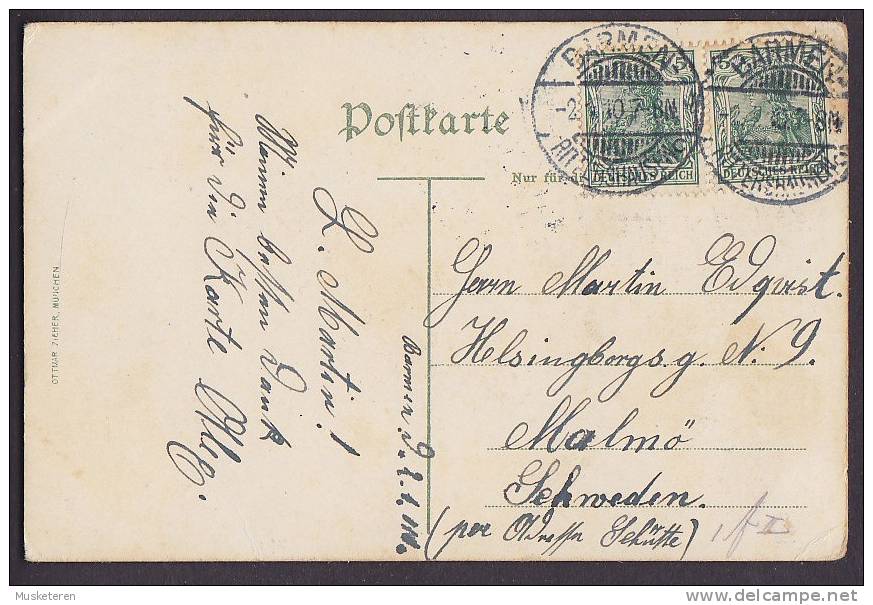 Postkarte
Nur für
BARMEN
-2.1.10.7-8N
RITTERSHAUSEN
DEUTSCHES REICH
BARMEN
7-8N
RITTERSHAUSEN
DEUTSCHES REICH
Herrn Martin Edqvist.
Helsingborgs.g. N: 9.
Malmö
Schweden.
(per Adresse Schütte)
Barmen d. 2.1.10.
L. Martin!
besten Dank
für d. Karte
OTTMAR ZIEHER, MÜNCHEN
Musketeren
delcampe.net